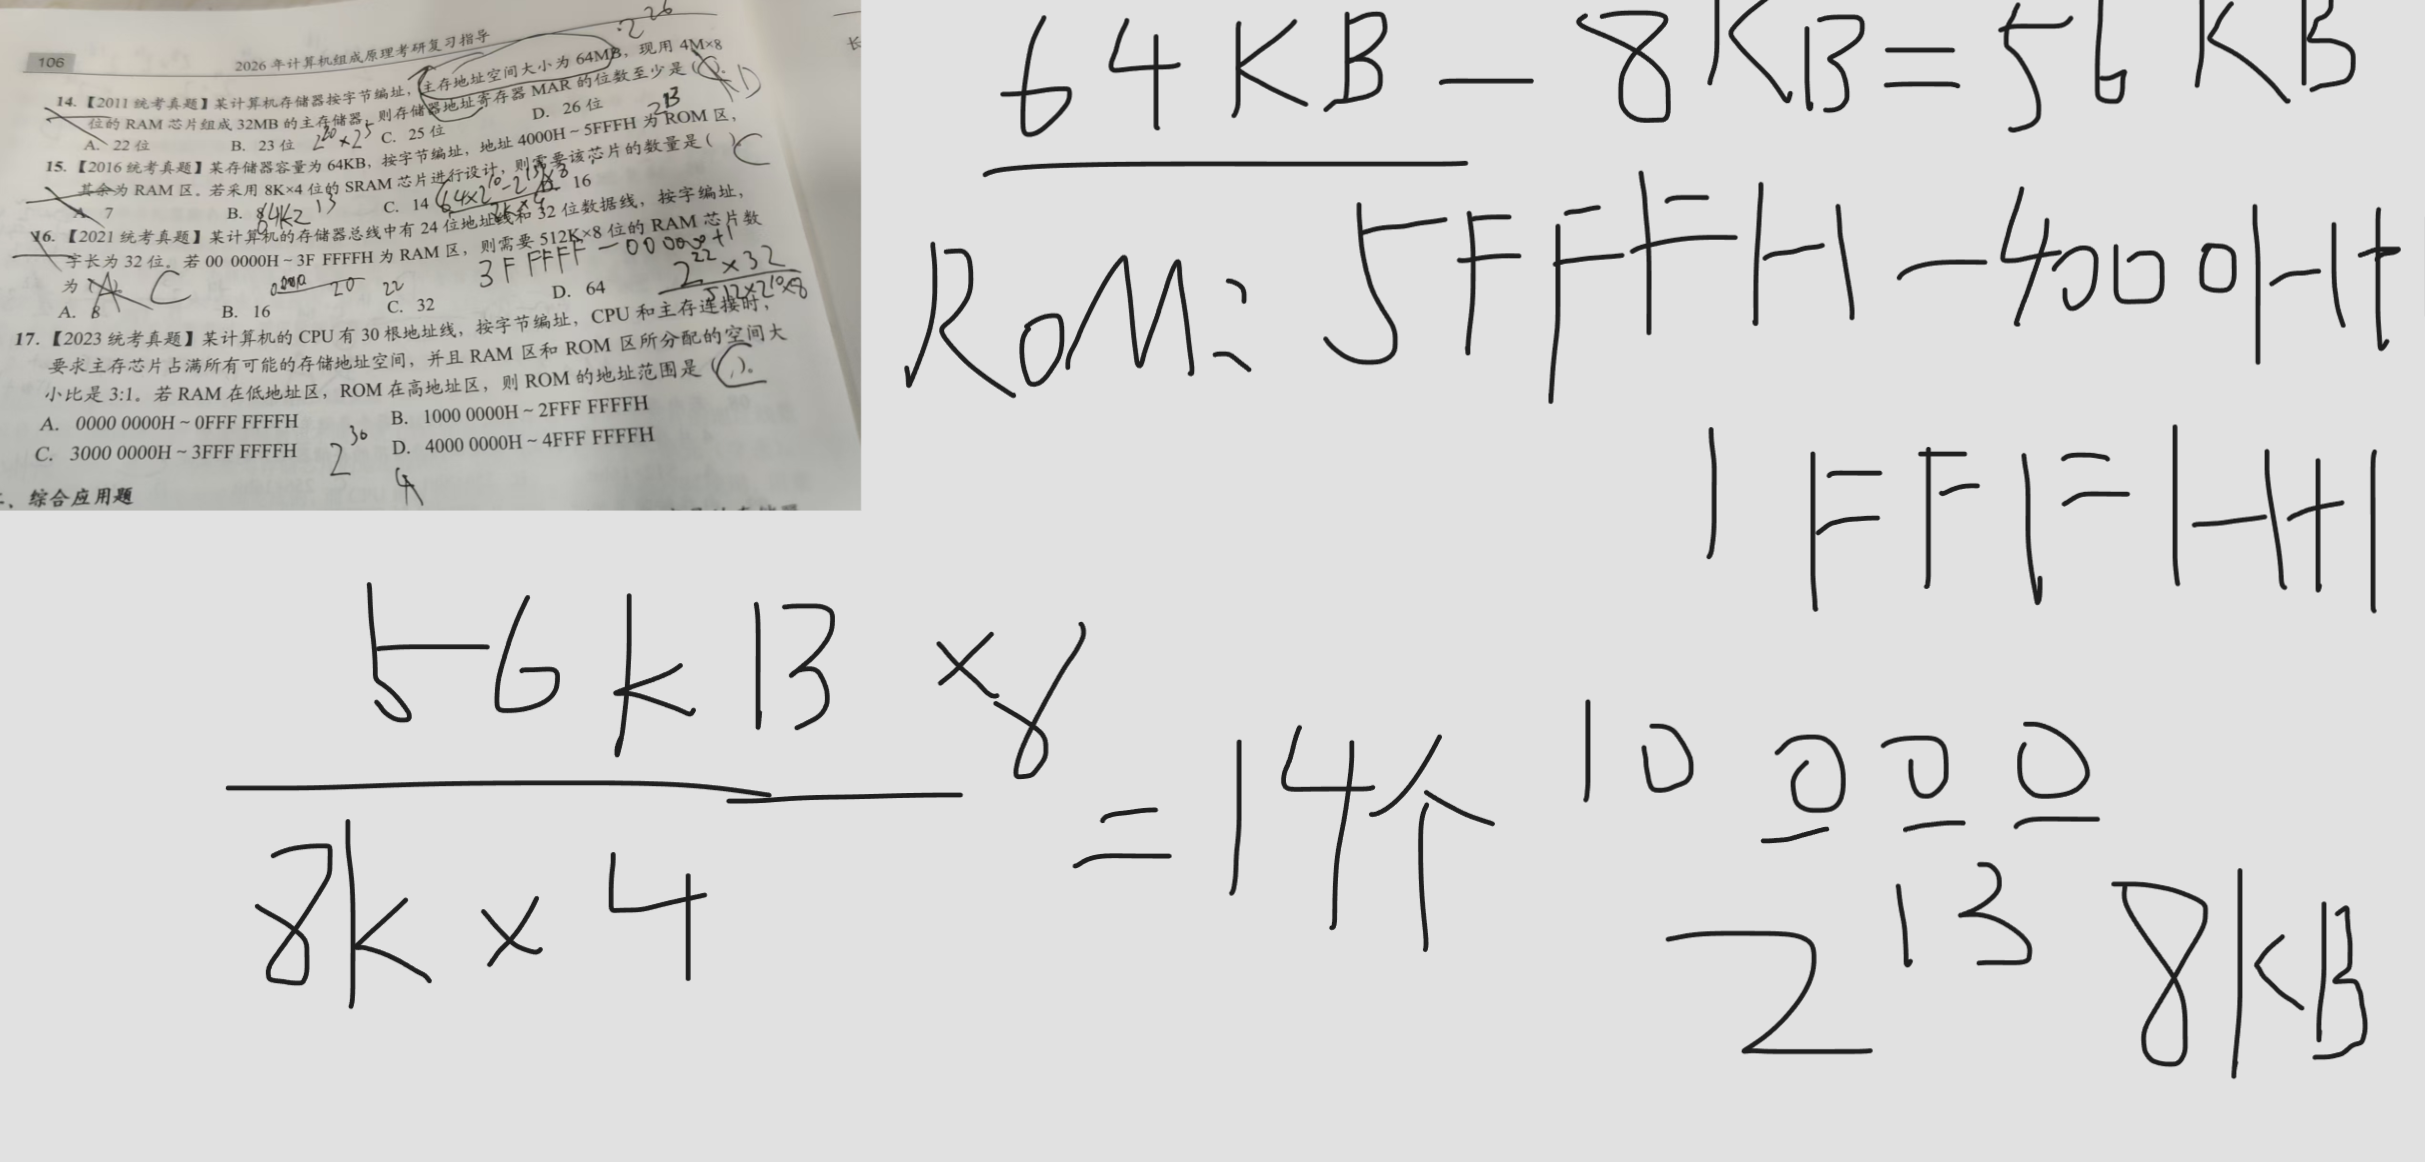 106
2026年计算机组成原理考研复习指导
2^26
14.【2011统考真题】某计算机存储器按字节编址，主存地址空间大小为64MB，现用4M×8
位的RAM芯片组成32MB的主存储器，则存储器地址寄存器MAR的位数至少是( )。
D
A. 22位 B. 23位 C. 25位 D. 26位
2^20×2^5
2^13
15.【2016统考真题】某存储器容量为64KB，按字节编址，地址4000H~5FFFH为ROM区，
其余为RAM区。若采用8K×4位的SRAM芯片进行设计，则需要该芯片的数量是( )
C
A. 7 B. 8 C. 14 D. 16
16.【2021统考真题】某计算机的存储器总线中有24位地址线和32位数据线，按字编址，
字长为32位。若00 0000H~3F FFFFH为RAM区，则需要512K×8位的RAM芯片数
为( )
A C
3F FFFF - 00 0000+1
2^22×32
512×2^10×8
20 22
A. 8 B. 16 C. 32 D. 64
17.【2023统考真题】某计算机的CPU有30根地址线，按字节编址，CPU和主存连接时，
要求主存芯片占满所有可能的存储地址空间，并且RAM区和ROM区所分配的空间大
小比是3:1。若RAM在低地址区，ROM在高地址区，则ROM的地址范围是( )。
C
A. 0000 0000H~0FFF FFFFH B. 1000 0000H~2FFF FFFFH
C. 3000 0000H~3FFF FFFFH D. 4000 0000H~4FFF FFFFH
2^30
4
综合应用题
64KB - 8KB = 56KB
ROM: 5FFFH - 4000H+
1FFFH+1
10000
2^13 8KB
56KB×8
8K×4
=14个